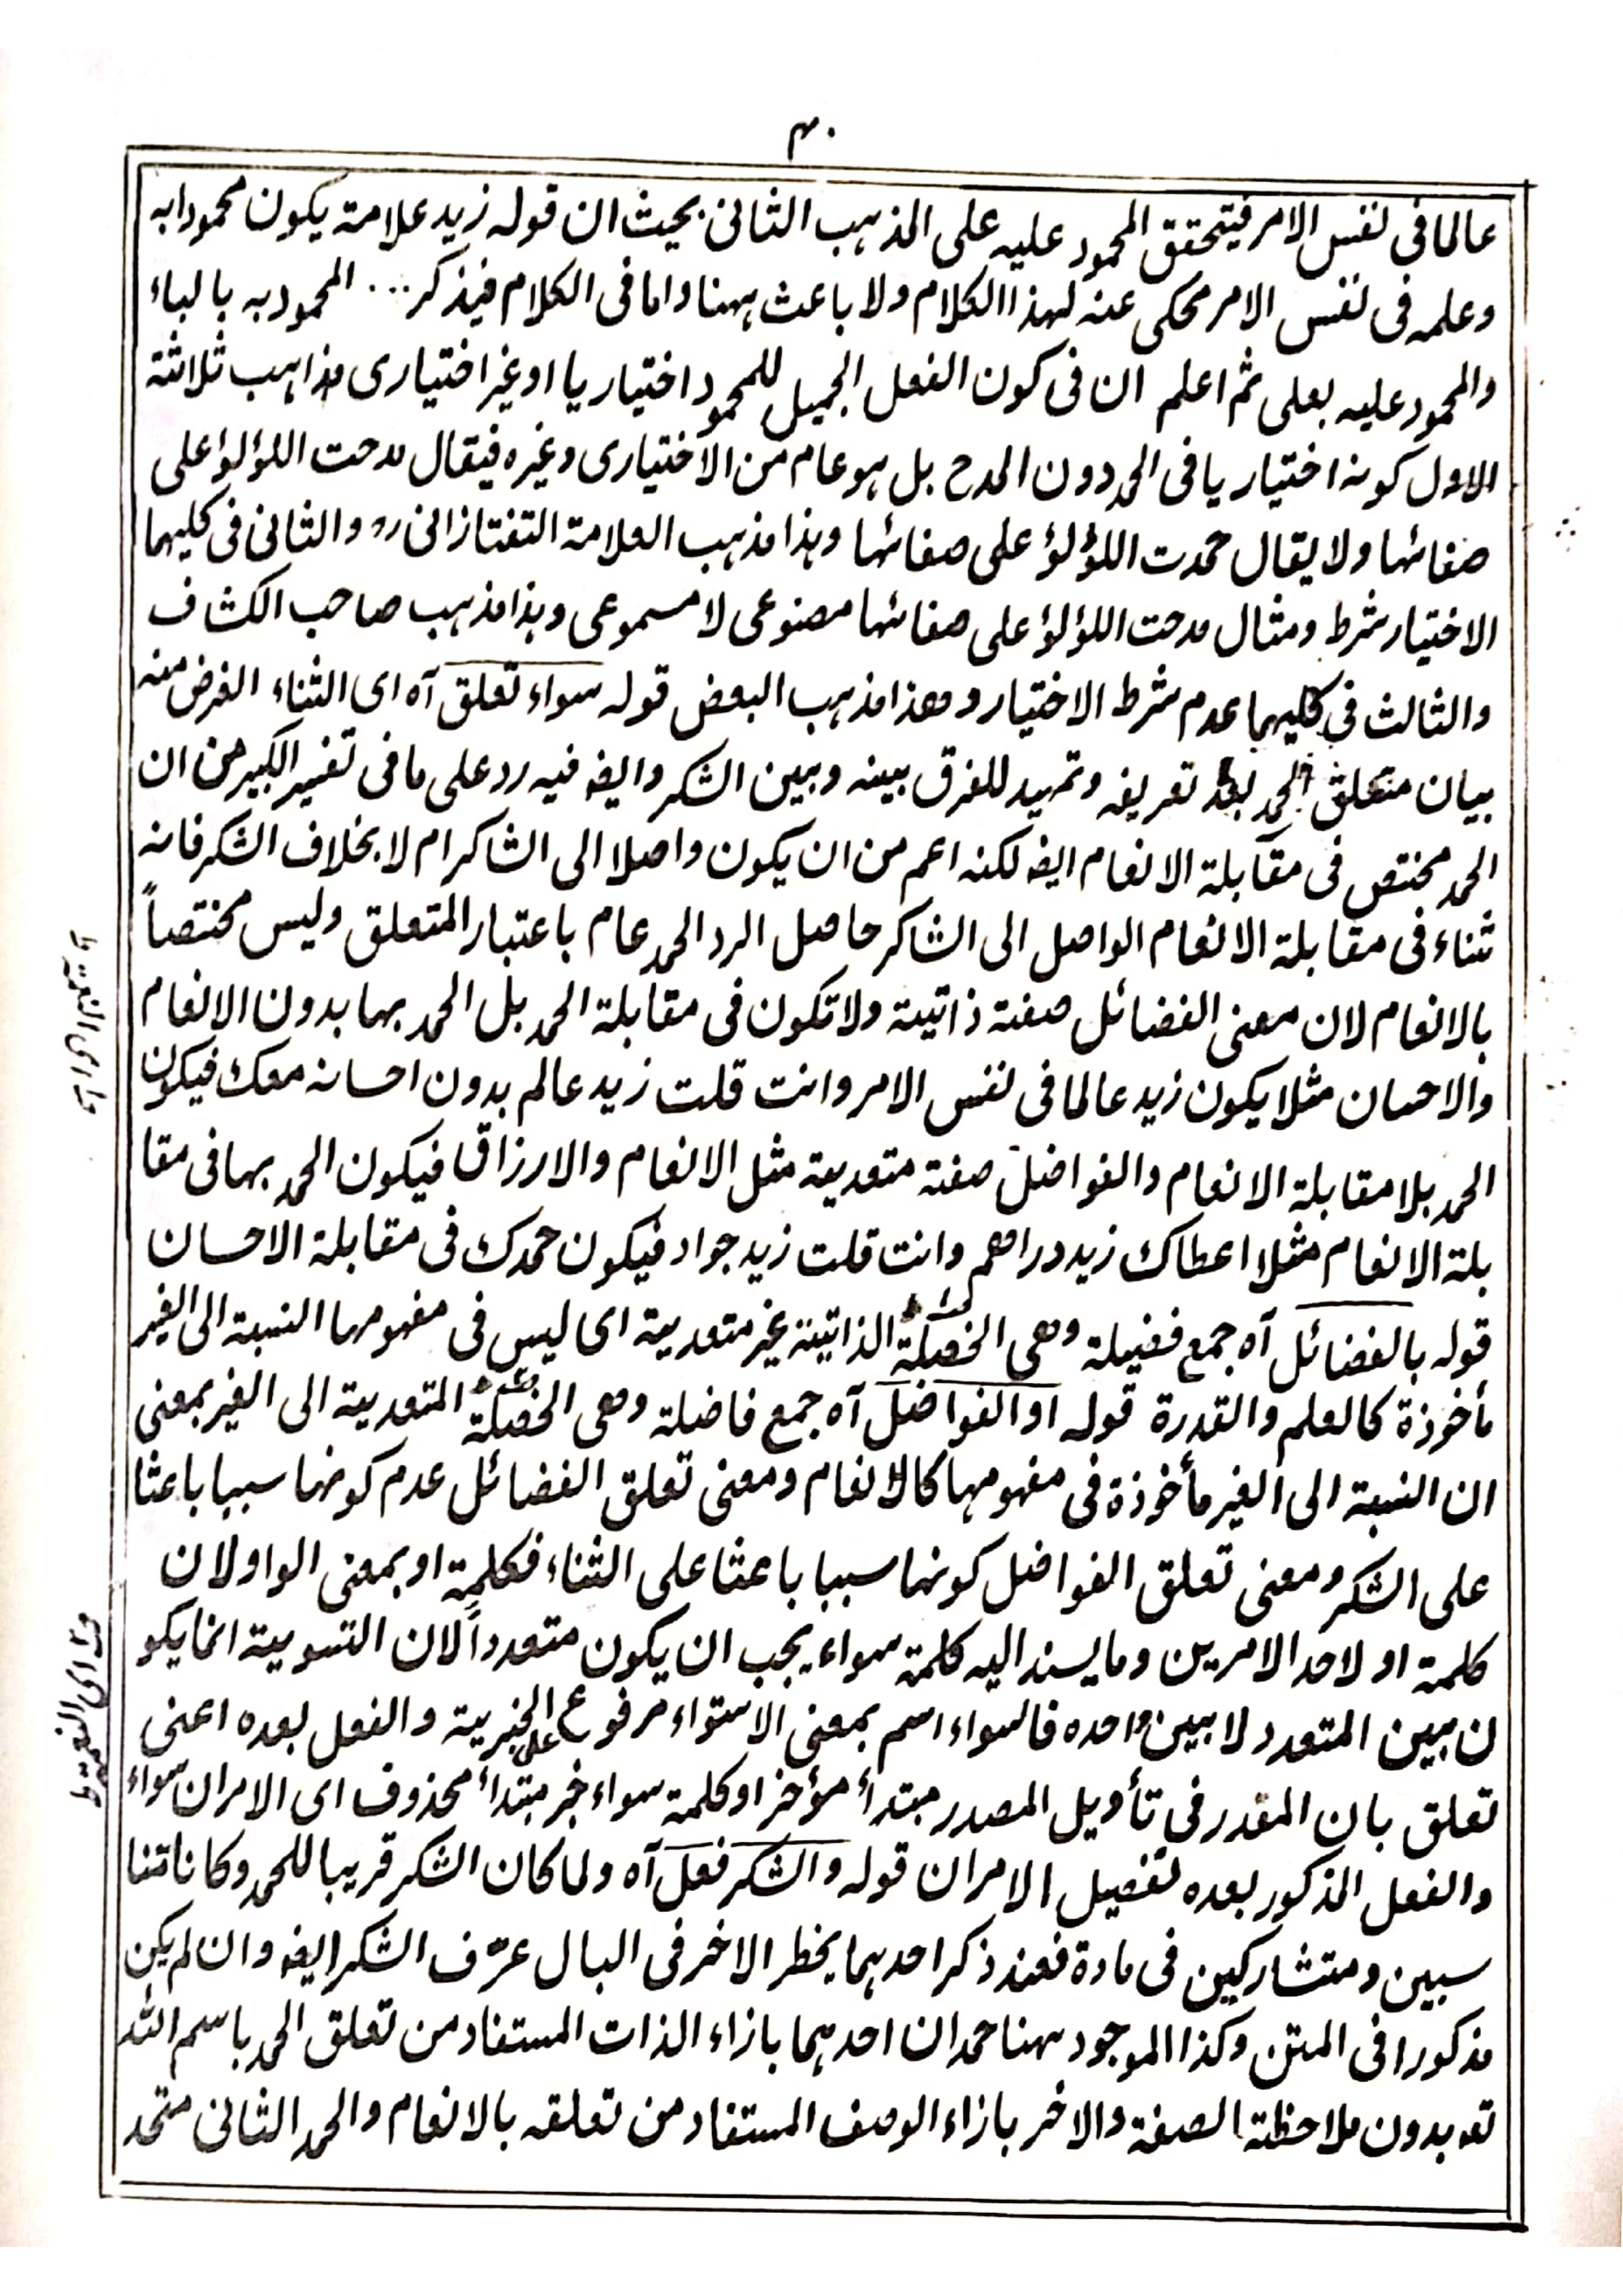 ۴۰
عالما فی نفس الامر فیتحقق المحمود علیہ علی المذہب الثانی بحیث ان قولہ زید علامۃ یکون محمودا بہ
وعلمہ فی نفس الامر محکی عنہ لہذا الکلام ولا باعث ہہنا واما فی الکلام فیذکر ... المحمود بہ بالباء
والمحمود علیہ بعلی ثم اعلم ان فی کون الفعل الجمیل للمحمود اختیاریا او غیر اختیاری مذاہب ثلاثۃ
الاول کونہ اختیاریا فی الحمد دون المدح بل ہو عام من الاختیاری وغیرہ فیقال مدحت اللؤلؤ علی
صفائہا ولا یقال حمدت اللؤلؤ علی صفائہا وہذا مذہب العلامۃ التفتازانی رہ والثانی فی کلیہما
الاختیار شرط ومثال مدحت اللؤلؤ علی صفائہا مصنوعی لا مسموعی وہذا مذہب صاحب الکشاف
والثالث فی کلیہما عدم شرط الاختیار وھذا مذہب البعض قولہ سواء تعلق آہ ای الثناء الغرض منہ
بیان متعلق الحمد بعد تعریفہ وتمہید للفرق بینہ وبین الشکر وایضہ فیہ رد علی ما فی تفسیر الکبیر من ان
الحمد مختص فی مقابلۃ الانعام ایضہ لکنہ اعم من ان یکون واصلا الی الشاکر ام لا بخلاف الشکر فانہ
ثناء فی مقابلۃ الانعام الواصل الی الشاکر حاصل الرد الحمد عام باعتبار المتعلق ولیس مختصاً
بالانعام لان معنی الفضائل صفۃ ذاتیۃ ولا تکون فی مقابلۃ الحمد بل الحمد بہا بدون الانعام
والاحسان مثلا یکون زید عالما فی نفس الامر وانت قلت زید عالم بدون احسانہ معک فیکون
الحمد بلا مقابلۃ الانعام والفواضل صفۃ متعدیۃ مثل الانعام والارزاق فیکون الحمد بہا فی مقا
بلۃ الانعام مثلا اعطاک زید دراھم وانت قلت زید جواد فیکون حمدک فی مقابلۃ الاحسان
قولہ بالفضائل آہ جمع فضیلۃ وھی الخصلۃ الذاتیۃ غیر متعدیۃ ای لیس فی مفہومہا النسبۃ الی الغیر
مأخوذۃ کالعلم والقدرۃ قولہ او الفواضل آہ جمع فاضلۃ وھی الخصلۃ المتعدیۃ الی الغیر بمعنی
ان النسبۃ الی الغیر مأخوذۃ فی مفہومہا کالانعام ومعنی تعلق الفضائل عدم کونہا سببا باعثا
علی الشکر ومعنی تعلق الفواضل کونہا سببا باعثا علی الثناء فکلمۃ او بمعنی الواو لان
کلمۃ او لاحد الامرین وما یسند الیہ کلمۃ سواء یجب ان یکون متعدداً لان التسویۃ انما یکو
ن بین المتعدد لا بین واحدہ فالسواء اسم بمعنی الاستواء مرفوع علی الخبریۃ والفعل بعدہ اعنی
تعلق بان المقدر فی تأویل المصدر مبتدأ مؤخر او کلمۃ سواء خبر مبتدأ محذوف ای الامران سواء
والفعل المذکور بعدہ تفصیل الامران قولہ والشکر فعل آہ ولما کان الشکر قریبا للحمد وکانا متنا
سبین ومتشارکین فی مادۃ فعند ذکر احدہما یخطر الاخر فی البال عرّف الشکر ایضہ وان لم یکن
مذکورا فی المتن وکذا الموجود ہہنا حمدان احدہما بازاء الذات المستفاد من تعلق الحمد باسم اللہ
تعہ بدون ملاحظۃ الصفۃ والاخر بازاء الوصف المستفاد من تعلقہ بالانعام والحمد الثانی متحد